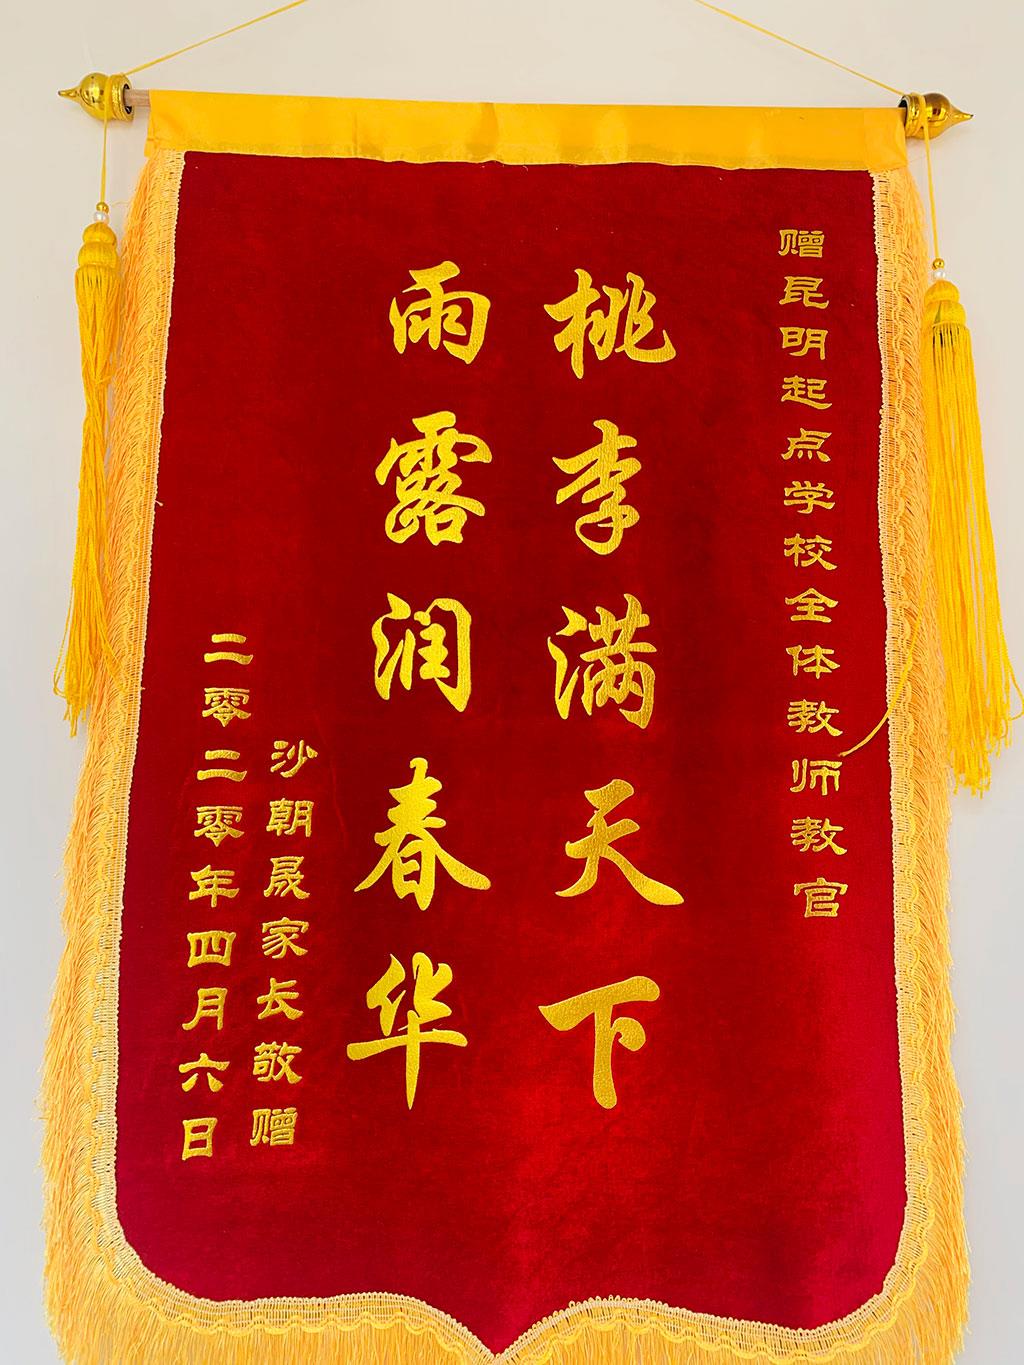 赠昆明起点学校全体教师教官
桃李满天下
雨露润春华
沙朝晟家长敬赠
二零二零年四月六日